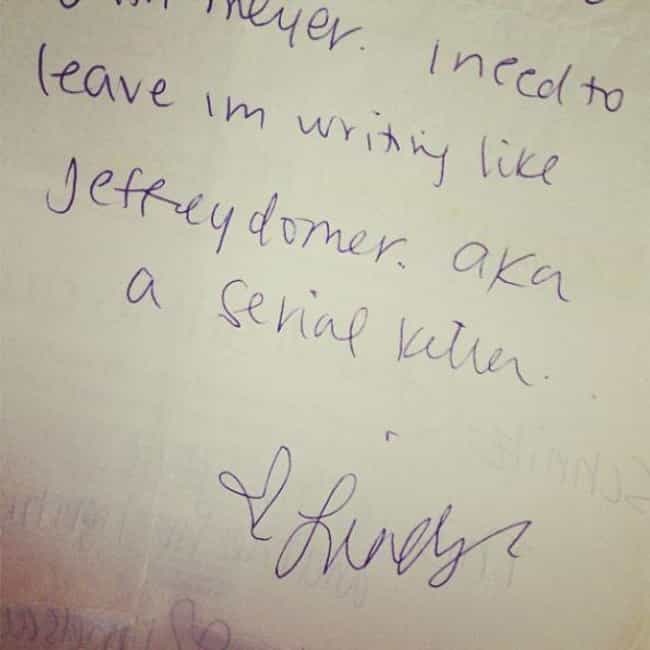 meyer. I need to
leave im writing like
Jeffrey domer. aka
a serial killer.
Lindsay